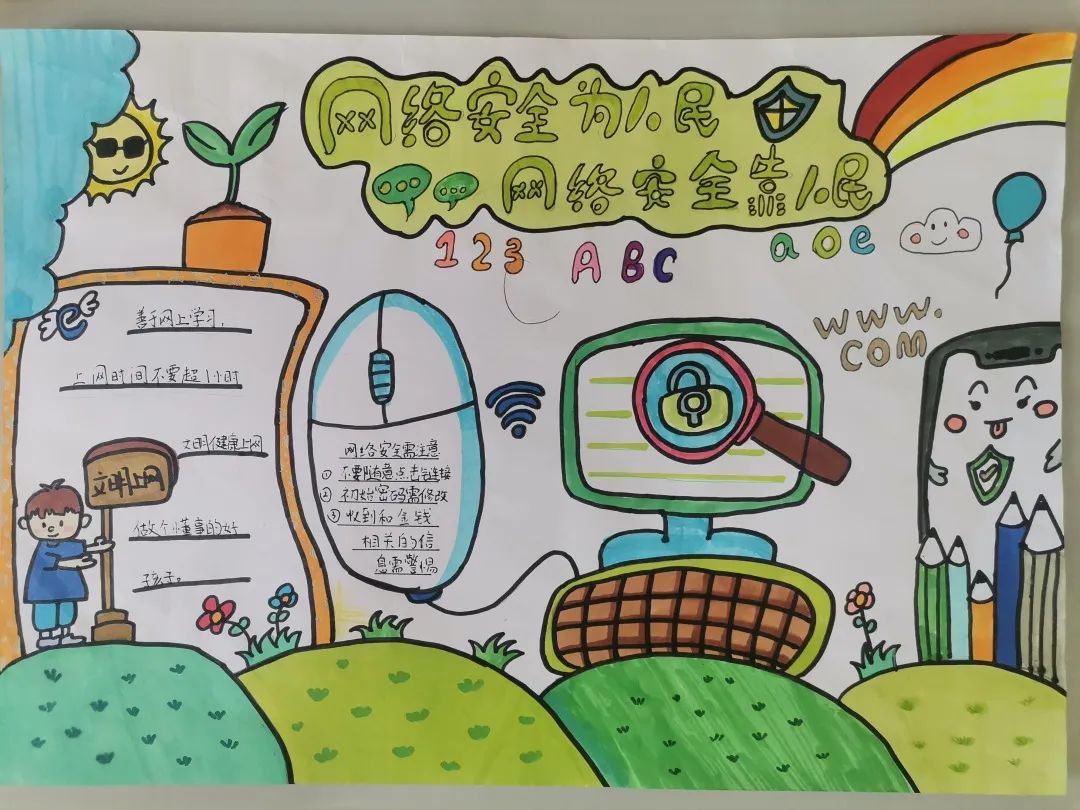 网络安全为人民
网络安全靠人民
123 ABC aoe
www.
COM
e
善于网上学习,
上网时间不要超1小时
文明健康上网
文明上网
做个懂事的好
孩子。
网络安全需注意
①不要随意点击链接
②初始密码需修改
③收到和金钱
相关的信
息需警惕